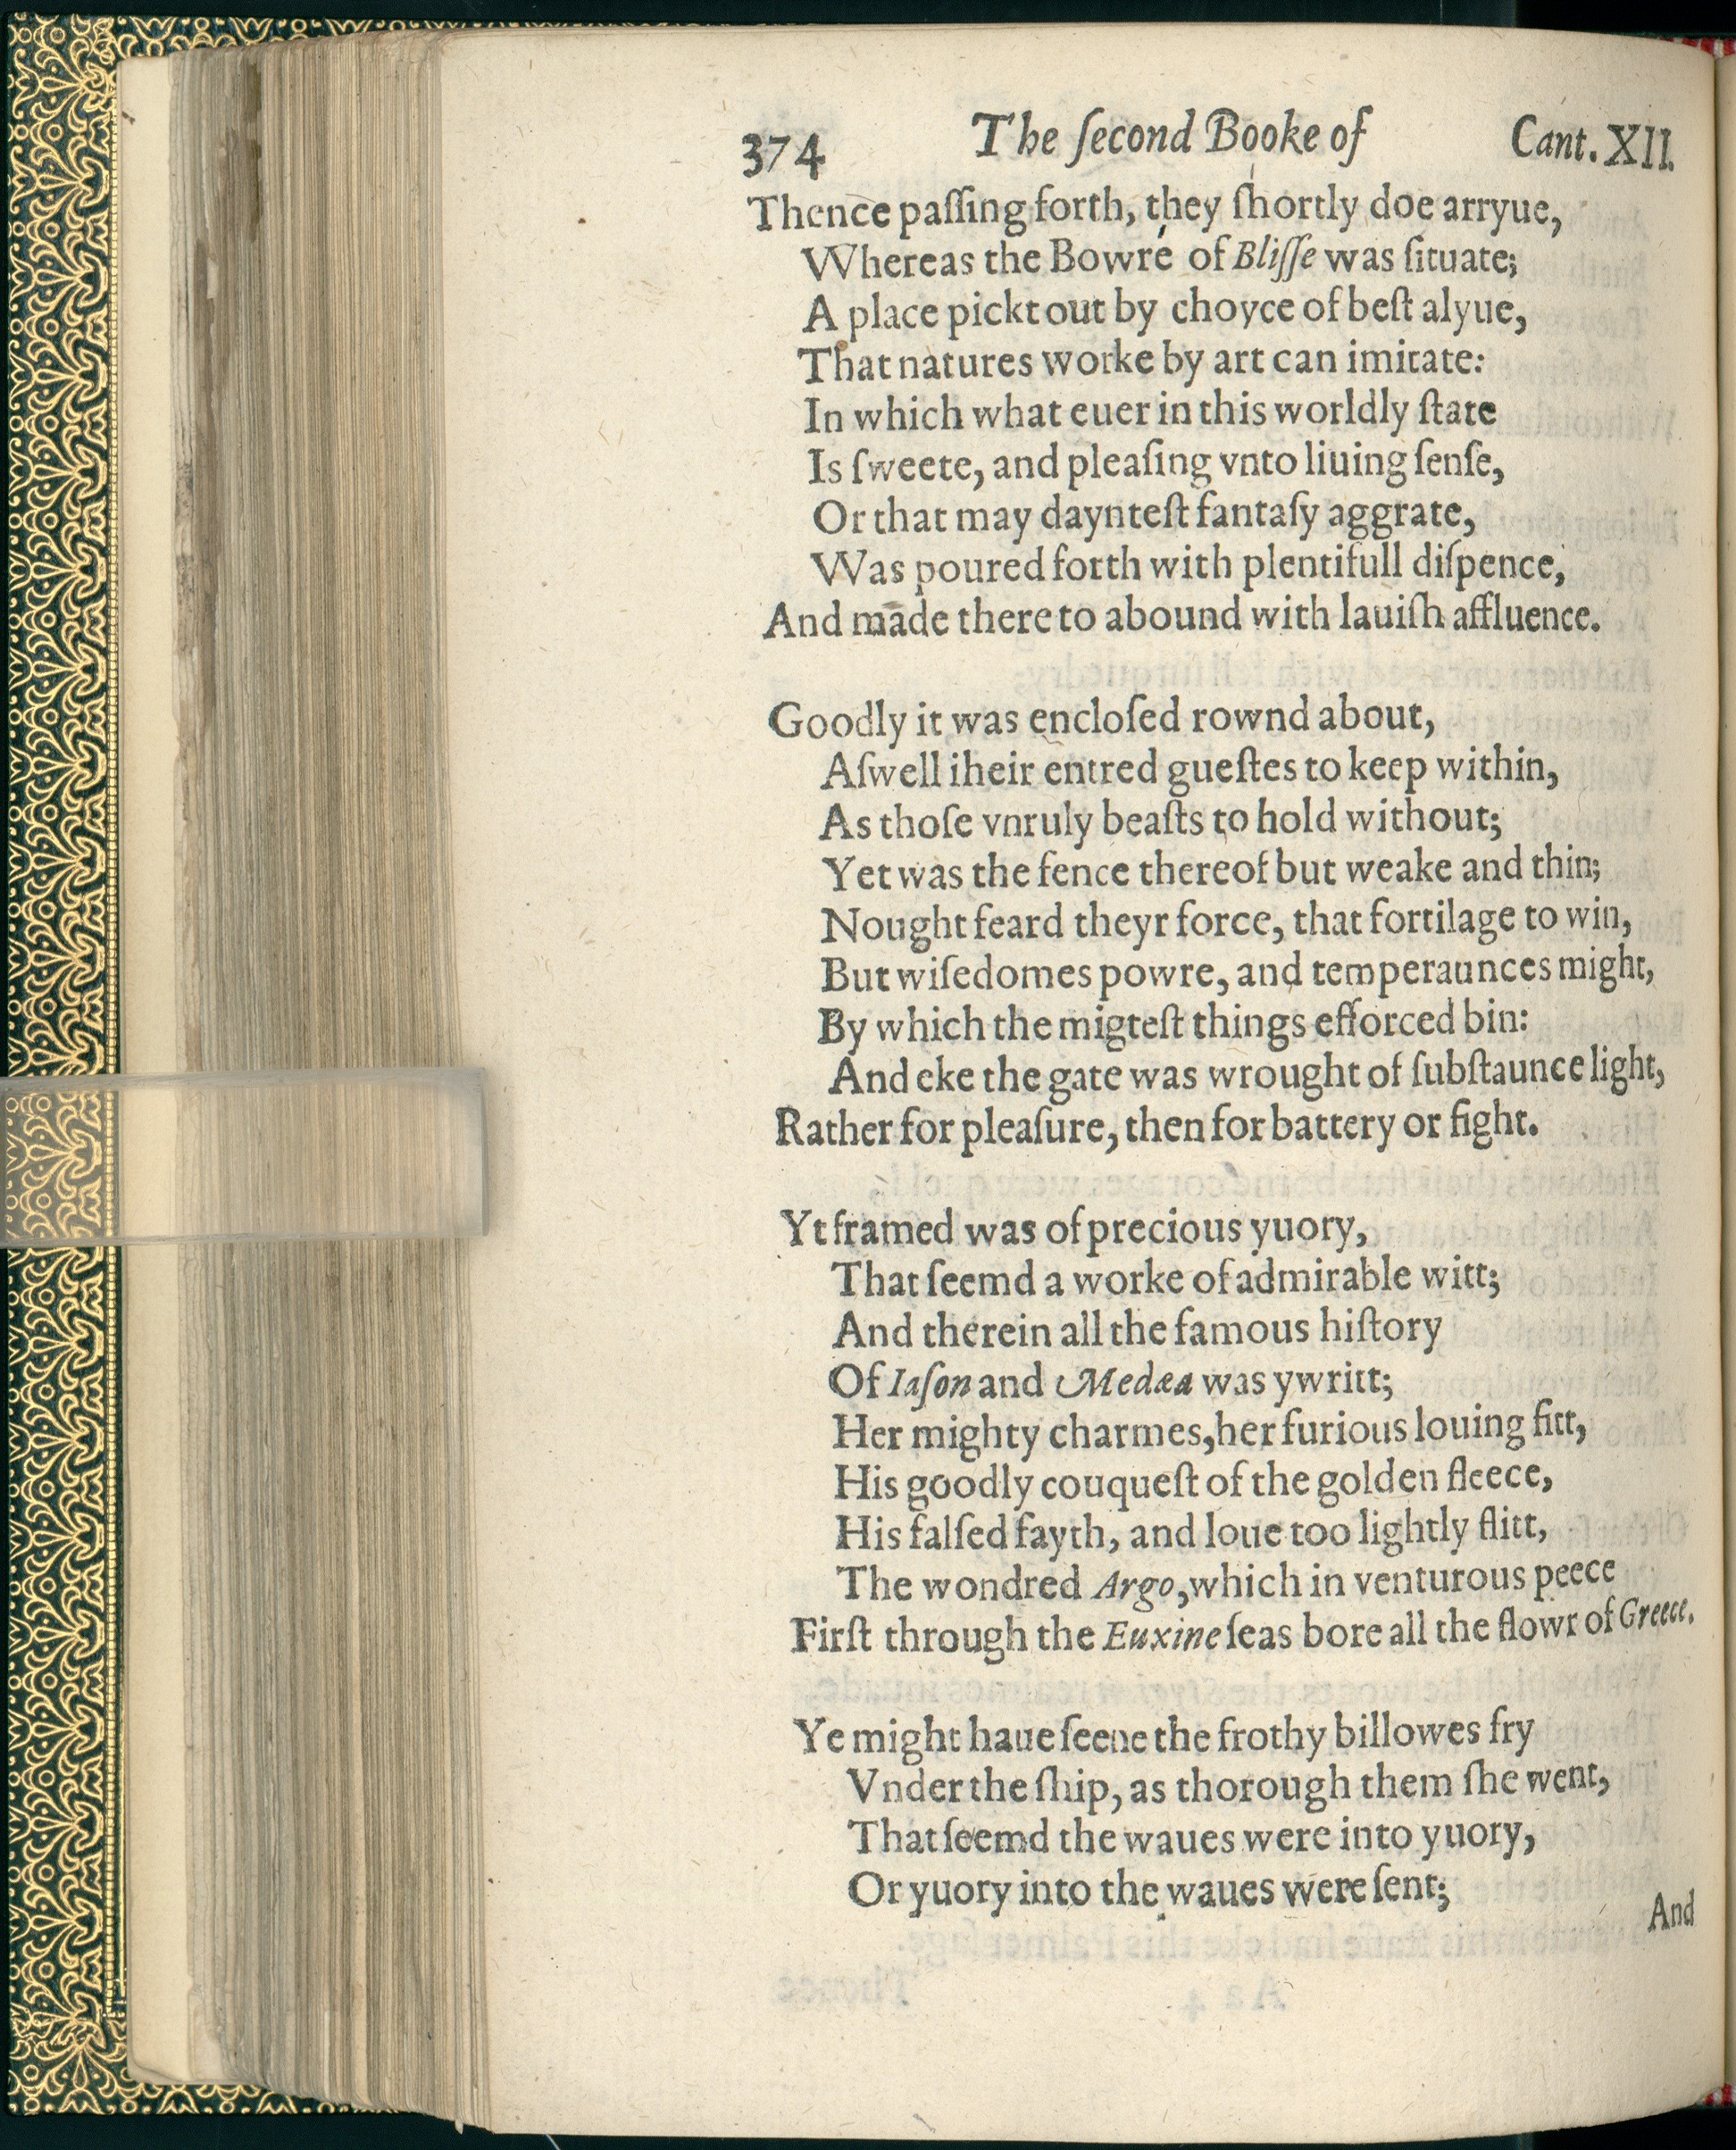 374 The ſecond Booke of Cant. XII.
Thence paſſing forth, they ſhortly doe arryue,
Whereas the Bowre of Bliſſe was ſituate;
A place pickt out by choyce of beſt alyue,
That natures worke by art can imitate:
In which what euer in this worldly ſtate
Is ſweete, and pleaſing vnto liuing ſenſe,
Or that may daynteſt fantaſy aggrate,
Was poured forth with plentifull diſpence,
And made there to abound with lauiſh affluence.
Goodly it was encloſed rownd about,
Aſwell iheir entred gueſtes to keep within,
As thoſe vnruly beaſts to hold without;
Yet was the fence thereof but weake and thin;
Nought feard theyr force, that fortilage to win,
But wiſedomes powre, and temperaunces might,
By which the migteſt things efforced bin:
And eke the gate was wrought of ſubſtaunce light,
Rather for pleaſure, then for battery or fight.
Yt framed was of precious yuory,
That ſeemd a worke of admirable witt;
And therein all the famous hiſtory
Of Iaſon and Medæa was ywritt;
Her mighty charmes, her furious louing fitt,
His goodly couqueſt of the golden fleece,
His falſed fayth, and loue too lightly flitt,
The wondred Argo, which in venturous peece
Firſt through the Euxine ſeas bore all the flowr of Greece.
Ye might haue ſeene the frothy billowes fry
Vnder the ſhip, as thorough them ſhe went,
That ſeemd the waues were into yuory,
Or yuory into the waues were ſent;
And